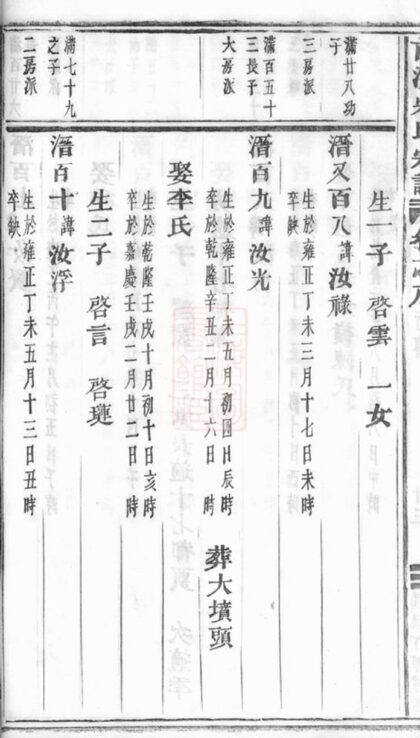 生一子 啓雲 一女
滿廿八功
之子
三房派
溍又百八諱汝祿
生於雍正丁未三月十七日未時
卒缺
滿百五十
三長子
大房派
溍百九諱汝光
生於雍正丁未五月初四日辰時
卒於乾隆辛丑二月十六日 時
葬大墳頭
娶李氏
生於乾隆壬戌十月初十日亥時
卒於嘉慶壬戌二月廿二日 時
生二子 啓言 啓璉
滿七十九
之子
二房派
溍百十諱汝浮
生於雍正丁未五月十三日丑時
卒缺